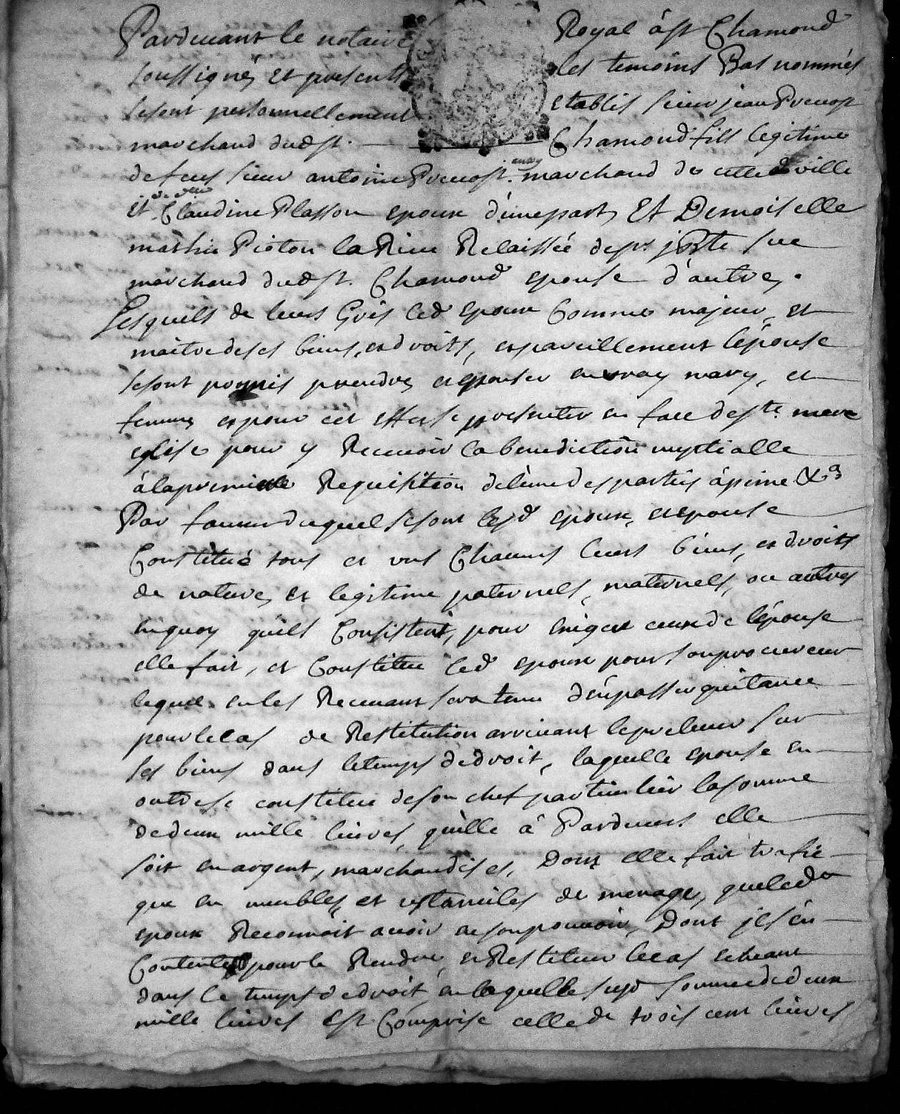 Pardevant le notaire Royal à st Chamond
soussigné et presents les temoins Bas nommés
sesont personnellement etablis sieur jean Prevost
marchand dudst. Chamond fils legitime
de feus sieur antoine Prevost, marchand de cette ville
et Claudine Plasson epoux d'unepart, Et Demoiselle
mathie Pioton la Relaissée de
marchand dudst. Chamond epouse d'autre,
Lesquels de leurs Grés led epoux Comme majeur, et
maitre deses biens, et droits, et pareillement l'épouse
sesont promis prendre et epouser en vray mary, et
femme et pour cet effet se presenter en face de ste mere
eglise pour y Recevoir la benediction nuptialle
àlapremiere Requisition del'une des parties àpeine &a
Par faveur duquel sesont lesd epoux, et epouse
Constitué tous et uns Chacuns leurs biens, et droits
de nature, et legitime paternels, maternels, ou autres
enquoy qu'ils Consistent, pour exiger ceux de l'épouse
elle fait, et Constitue led epoux pour son procureur
lequel en les Recevant sera tenu d'en passer quitance
pour le cas de Restitution arrivant les prelever sur
ses biens dans letemps dedroit, laquelle epouse en
outre se constitue deson chef particulier lasomme
dedeux mille livres, qu'elle à Pardevers elle
soit en argent, marchandises, Dont elle fait trafic
que en meubles, et ustanciles de menage, queled
epoux Reconnoit avoir asonpouvoir, Dont
Contente pour le Rendre et Restituer lecas echeant
dans le temps dedroit, en laquelle susd somme dedeux
mille livres est Comprise celle de trois cent livres